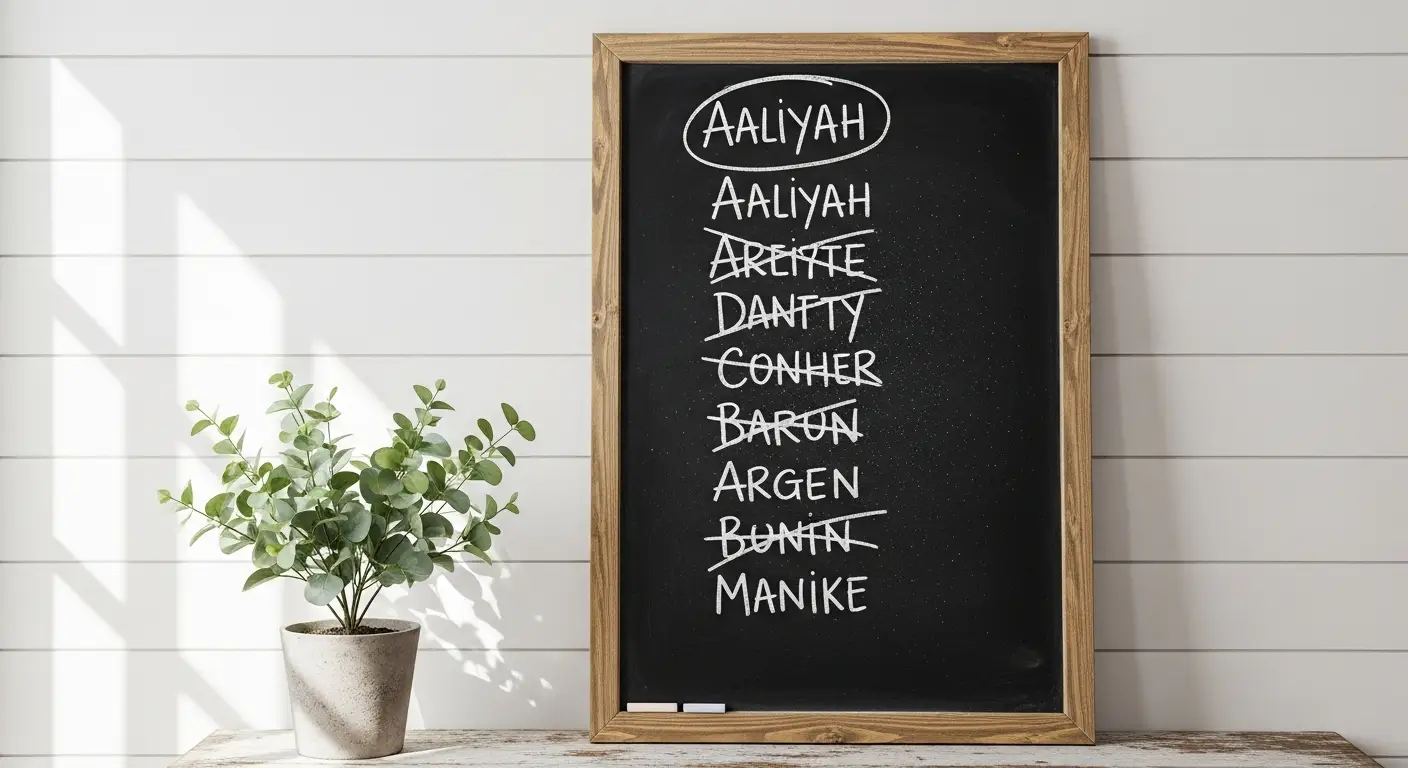 AALiYAH
AALiYAH
AREiYTE
DANTTY
CONHER
BARUN
ARGEN
BUNiN
MANiKE